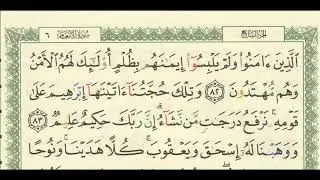 الجزء السابع ٦ سورة الأنعام
ٱلَّذِينَ ءَامَنُوا۟ وَلَمْ يَلْبِسُوٓا۟ إِيمَٰنَهُم بِظُلْمٍ أُو۟لَٰٓئِكَ لَهُمُ ٱلْأَمْنُ
وَهُم مُّهْتَدُونَ ٨٢ وَتِلْكَ حُجَّتُنَآ ءَاتَيْنَٰهَآ إِبْرَٰهِيمَ عَلَىٰ
قَوْمِهِۦ ۚ نَرْفَعُ دَرَجَٰتٍ مَّن نَّشَآءُ ۗ إِنَّ رَبَّكَ حَكِيمٌ عَلِيمٌ ٨٣
وَوَهَبْنَا لَهُۥٓ إِسْحَٰقَ وَيَعْقُوبَ ۚ كُلًّا هَدَيْنَا ۚ وَنُوحًا